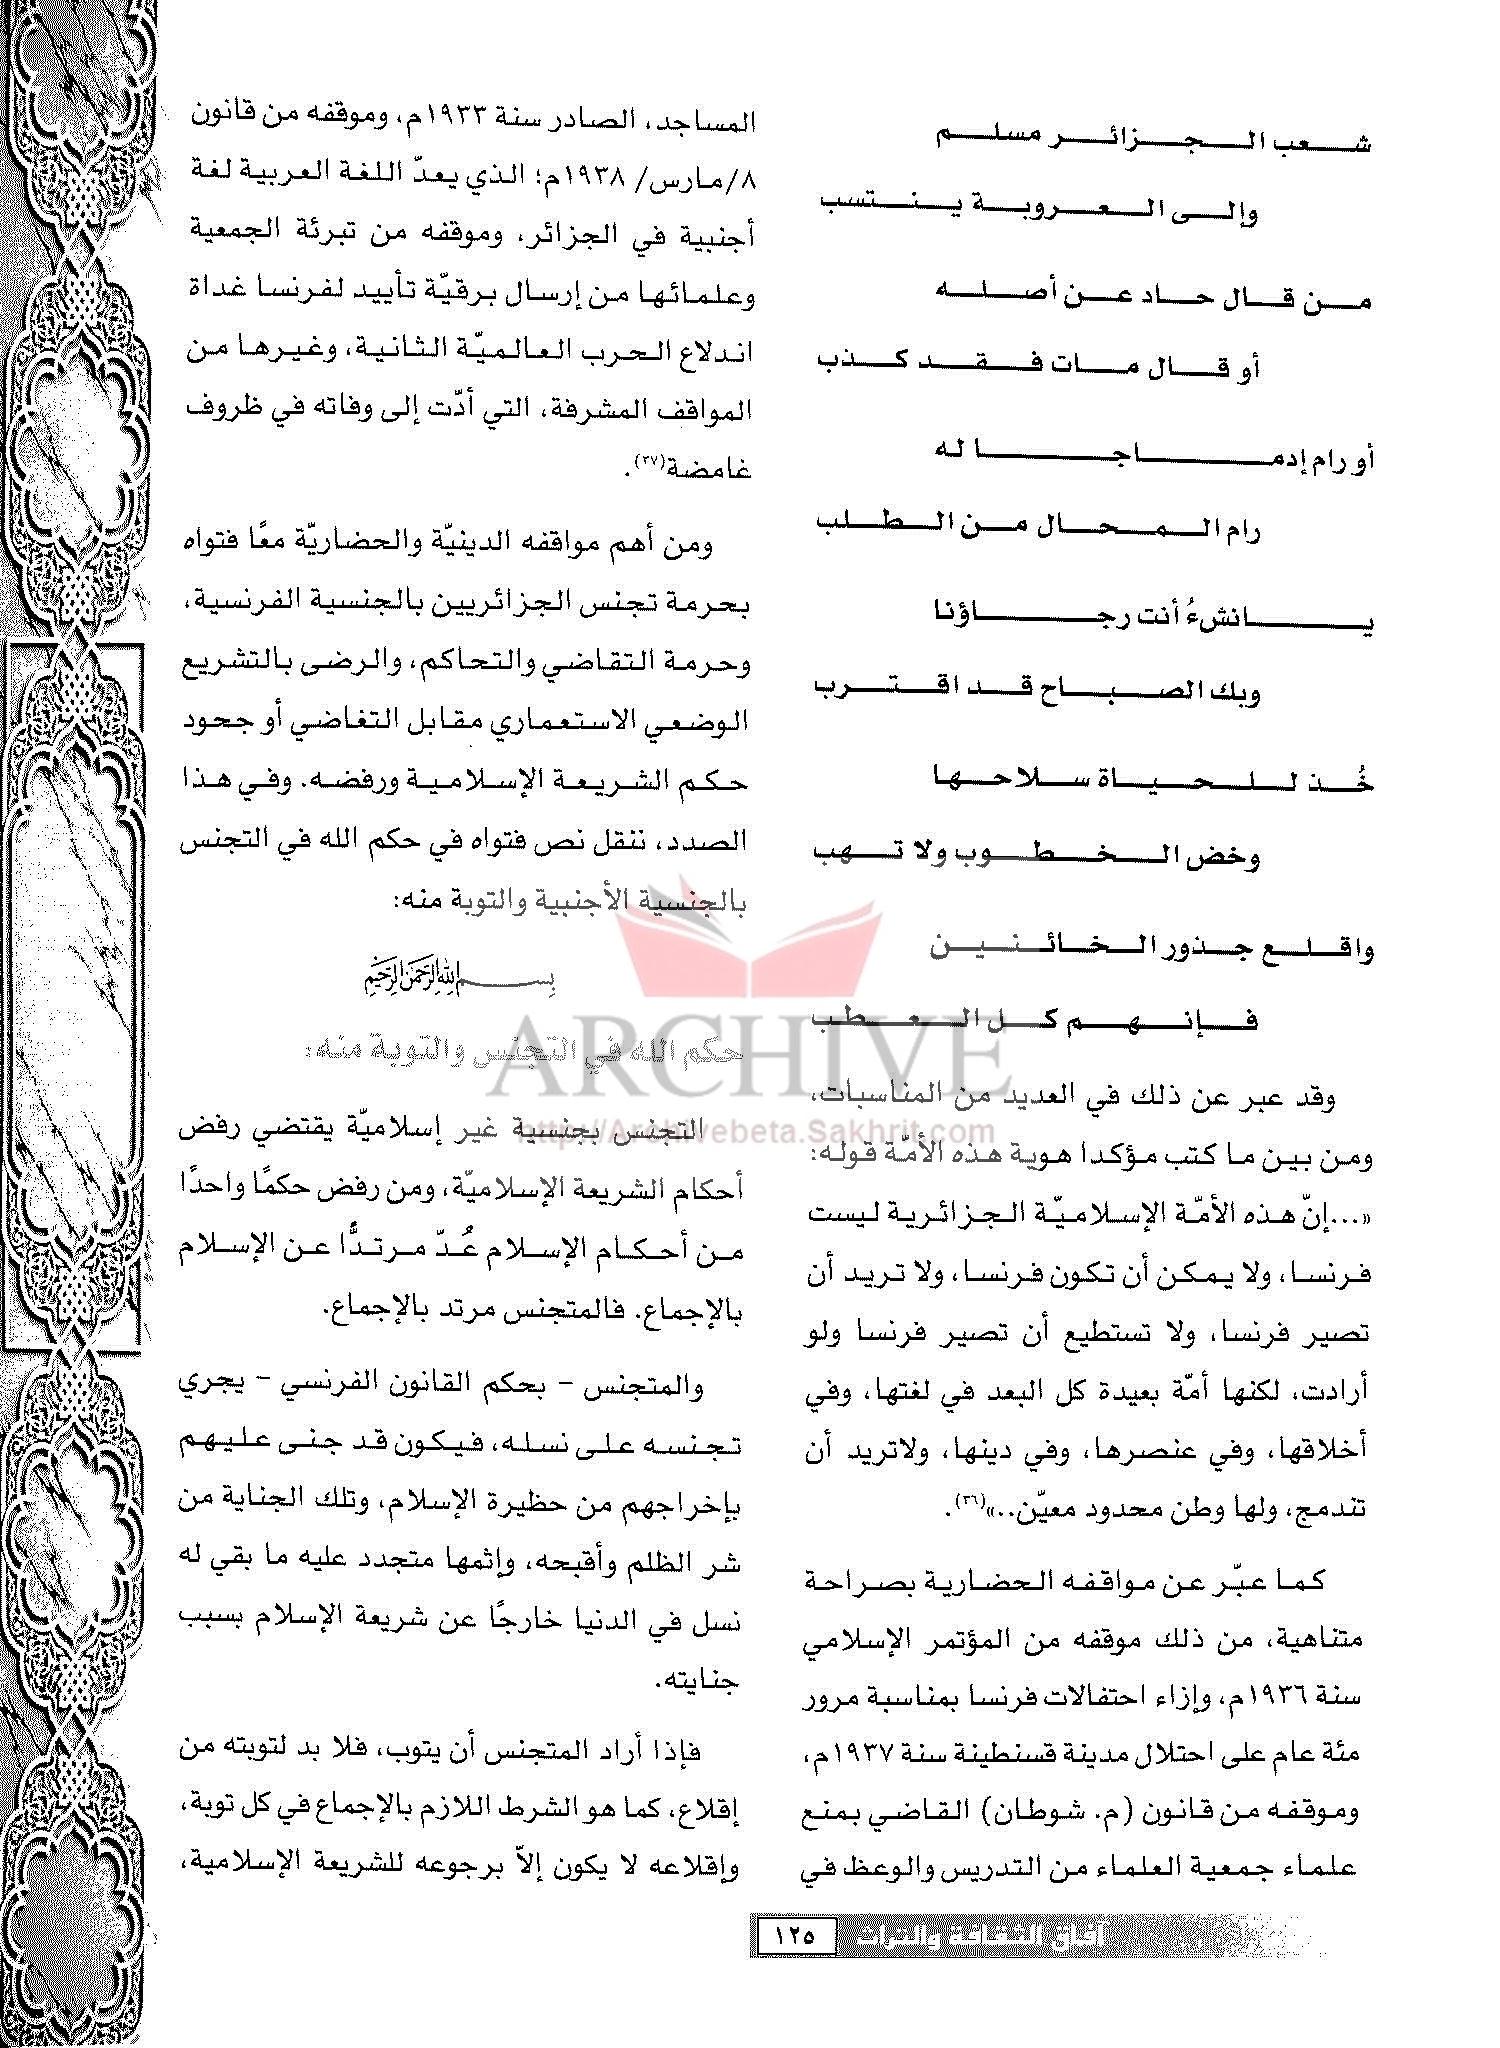 شعب الجزائر مسلم
وإلى العروبة ينتسب
من قال حاد عن أصله
أو قال مات فقد كذب
أو رام إدماجا له
رام المحال من الطلب
يانشءُ أنت رجاؤنا
وبك الصباح قد اقترب
خُذ للحياة سلاحها
وخض الخطوب ولا تهب
واقلع جذور الخائنين
فإنهم كل العطب
وقد عبر عن ذلك في العديد من المناسبات،
ومن بين ما كتب مؤكدا هوية هذه الأمّة قوله:
«...إنّ هذه الأمّة الإسلاميّة الجزائرية ليست
فرنسا، ولا يمكن أن تكون فرنسا، ولا تريد أن
تصير فرنسا، ولا تستطيع أن تصير فرنسا ولو
أرادت، لكنها أمّة بعيدة كل البعد في لغتها، وفي
أخلاقها، وفي عنصرها، وفي دينها، ولاتريد أن
تندمج، ولها وطن محدود معيّن..»(٣٦).
كما عبّر عن مواقفه الحضارية بصراحة
متناهية، من ذلك موقفه من المؤتمر الإسلامي
سنة ١٩٣٦م، وإزاء احتفالات فرنسا بمناسبة مرور
مئة عام على احتلال مدينة قسنطينة سنة ١٩٣٧م،
وموقفه من قانون (م. شوطان) القاضي بمنع
علماء جمعية العلماء من التدريس والوعظ في
المساجد، الصادر سنة ١٩٣٣م، وموقفه من قانون
٨/مارس/ ١٩٣٨م؛ الذي يعدّ اللغة العربية لغة
أجنبية في الجزائر، وموقفه من تبرئة الجمعية
وعلمائها من إرسال برقيّة تأييد لفرنسا غداة
اندلاع الحرب العالميّة الثانية، وغيرها من
المواقف المشرفة، التي أدّت إلى وفاته في ظروف
غامضة(٣٧).
ومن أهم مواقفه الدينيّة والحضاريّة معًا فتواه
بحرمة تجنس الجزائريين بالجنسية الفرنسية،
وحرمة التقاضي والتحاكم، والرضى بالتشريع
الوضعي الاستعماري مقابل التغاضي أو جحود
حكم الشريعة الإسلامية ورفضه. وفي هذا
الصدد، ننقل نص فتواه في حكم الله في التجنس
بالجنسية الأجنبية والتوبة منه:
بسم الله الرحمن الرحيم
حكم الله في التجنس والتوبة منه:
التجنس بجنسية غير إسلاميّة يقتضي رفض
أحكام الشريعة الإسلاميّة، ومن رفض حكمًا واحدًا
من أحكام الإسلام عُدّ مرتدًّا عن الإسلام
بالإجماع. فالمتجنس مرتد بالإجماع.
والمتجنس - بحكم القانون الفرنسي - يجري
تجنسه على نسله، فيكون قد جنى عليهم
بإخراجهم من حظيرة الإسلام، وتلك الجناية من
شر الظلم وأقبحه، وإثمها متجدد عليه ما بقي له
نسل في الدنيا خارجًا عن شريعة الإسلام بسبب
جنايته.
فإذا أراد المتجنس أن يتوب، فلا بد لتوبته من
إقلاع، كما هو الشرط اللازم بالإجماع في كل توبة،
وإقلاعه لا يكون إلاّ برجوعه للشريعة الإسلامية،
ARCHIVE
http://Archivebeta.Sakhrit.com
آفاق الثقافة والتراث ١٢٥